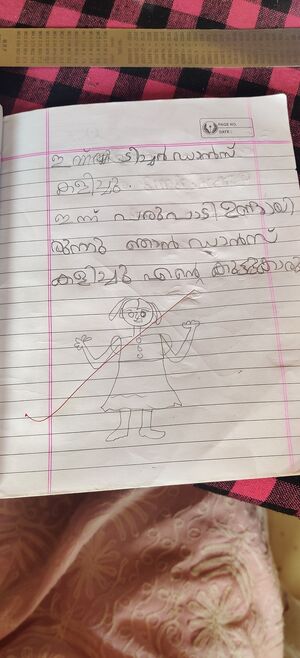 PAGE NO.
DATE:
ഇന്ന് ടീച്ചർ ഡാൻസ്
കളിച്ചു.
ഇന്ന് പരുപാടി ഉണ്ടായി
രുന്നു ഞാൻ ഡാൻസ്
കളിച്ചു എന്റെ കൂട്ടുകാരു